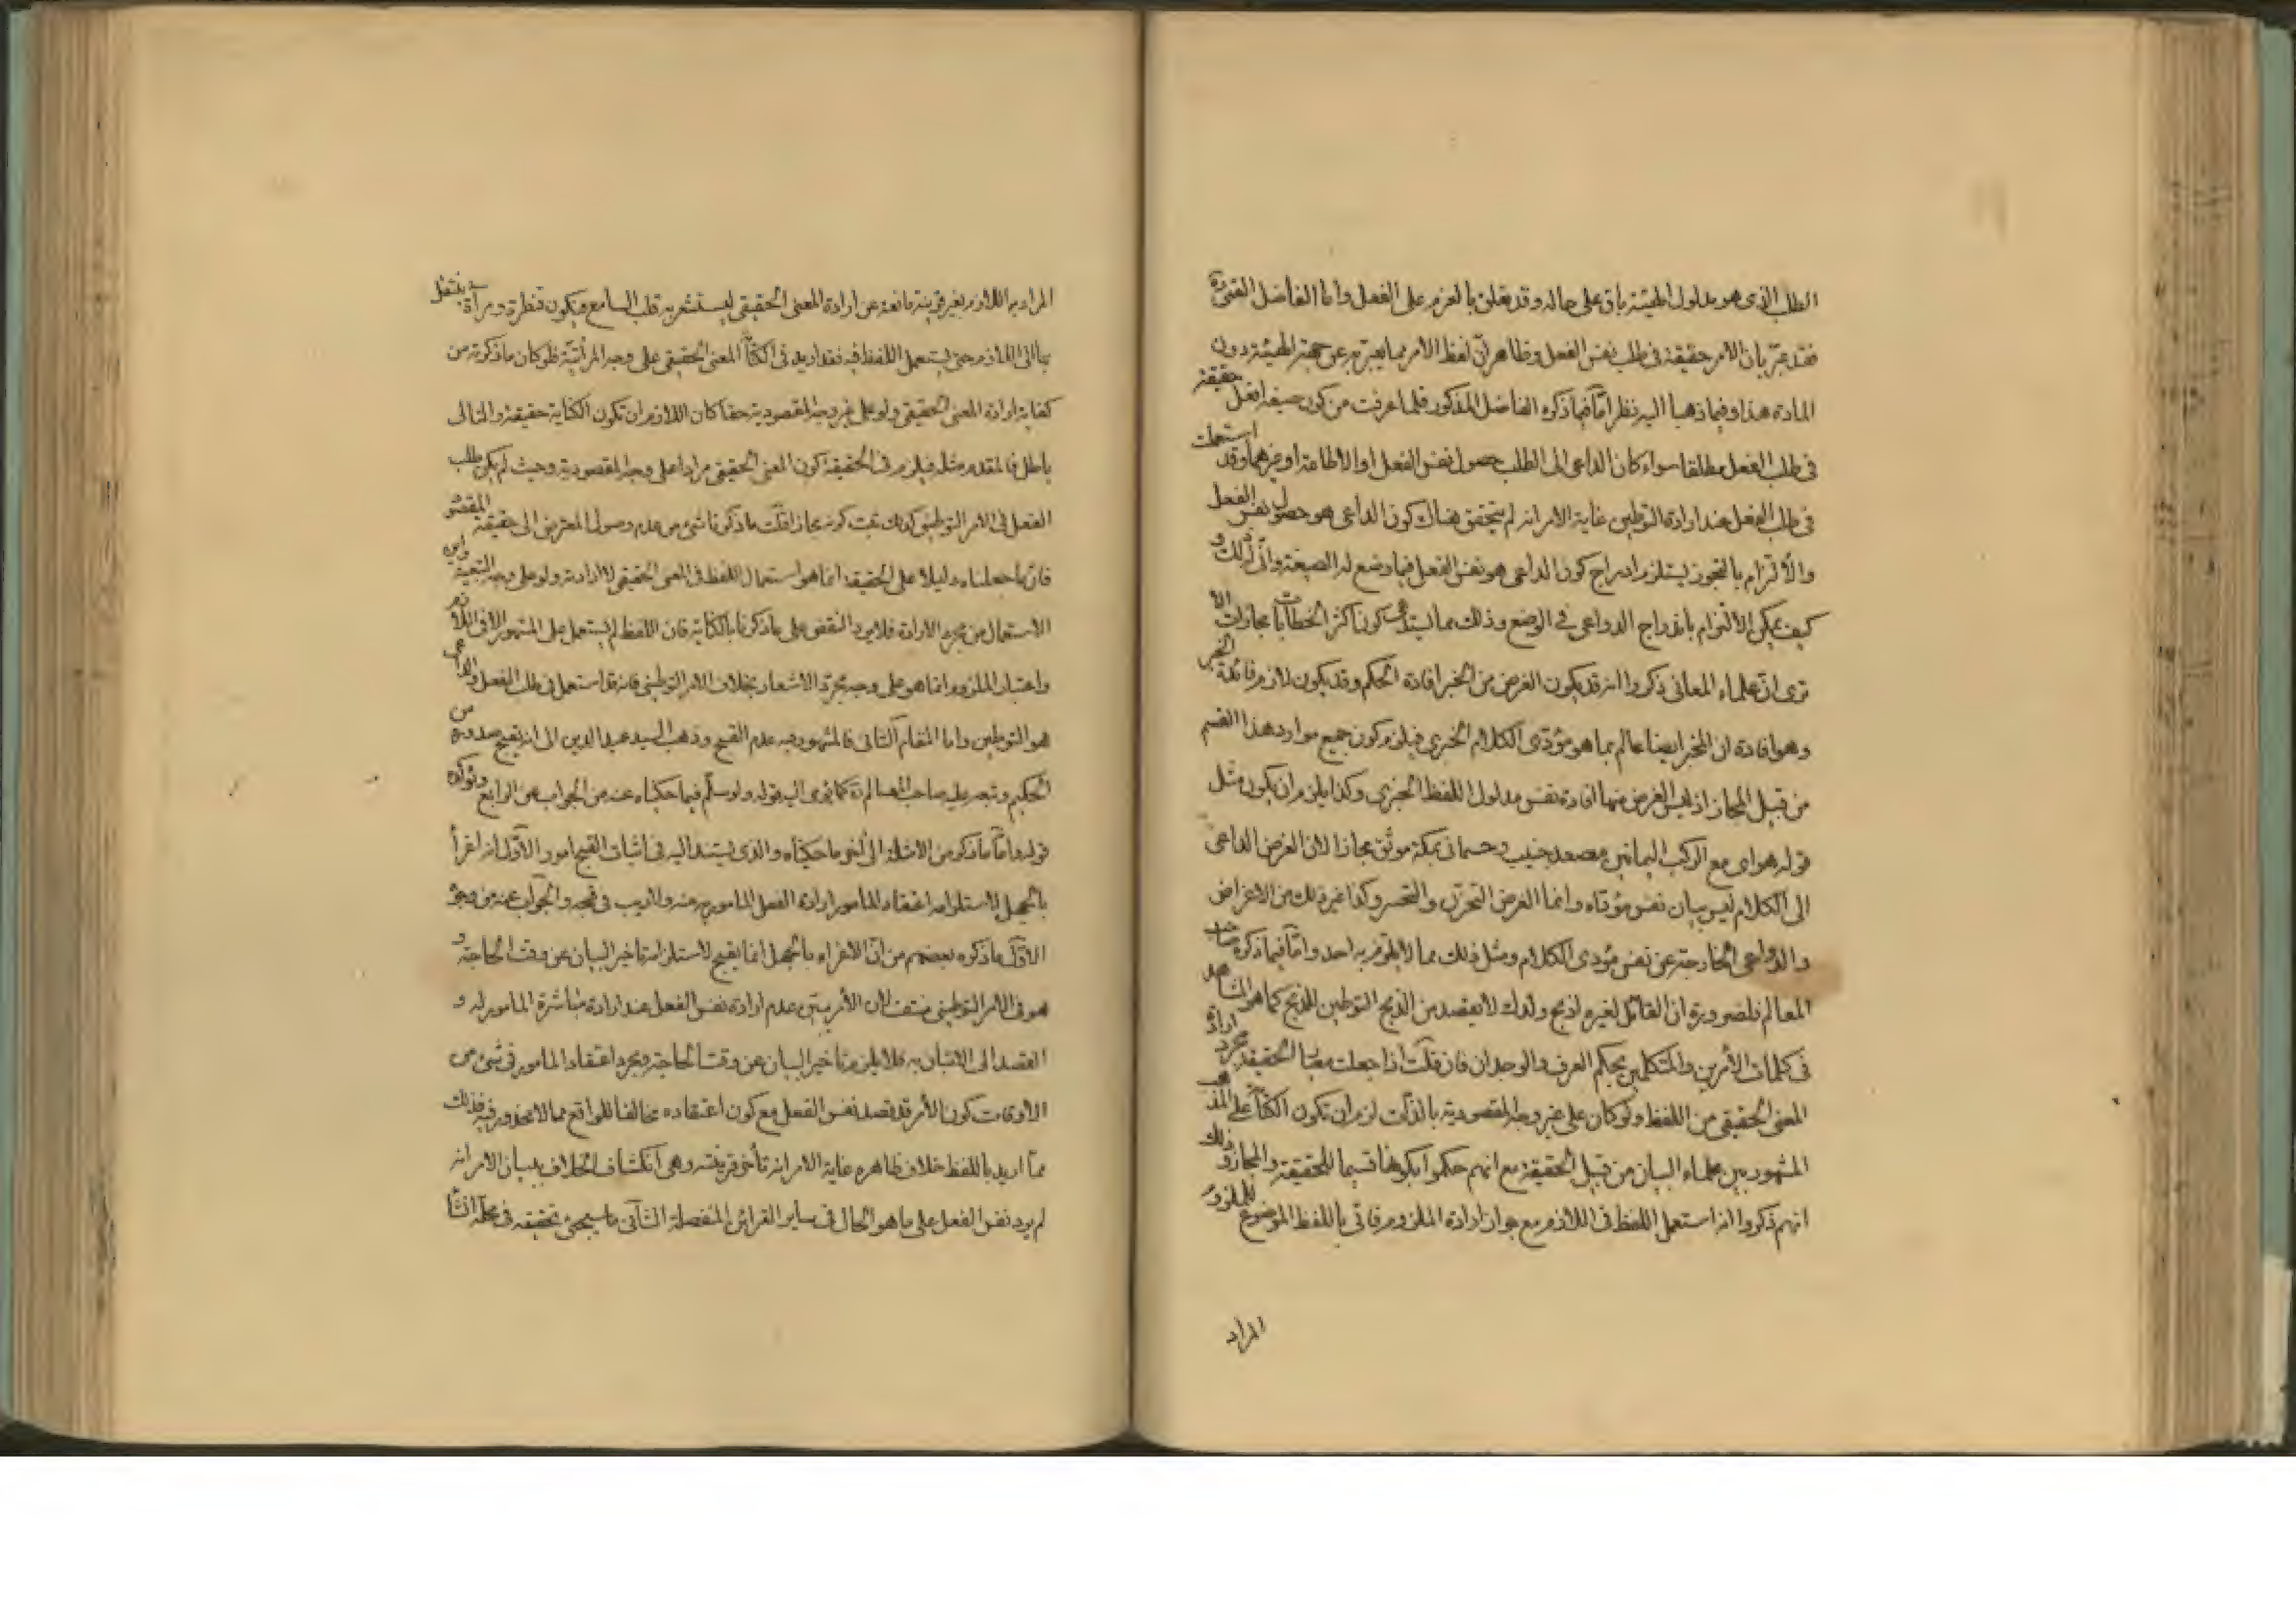 الطلب الذى هو مدلول الهيئة باق على حاله وقد تعلق بالعزم على الفعل واما الفاضل القمى ره
فقد عبّر بان الامر حقيقة فى طلب نفس الفعل وظاهره انّ لفظ الامر مما يعبّر به عن جهة الهيئة دون
المادة هذا وفيما ذهبا اليه نظر امّا فيما ذكره الفاضل المذكور فلما عرفت من كون صيغة افعل حقيقة
فى طلب الفعل مطلقا سواء كان الداعى الى الطلب حصول نفس الفعل او الاطاعة او غيرهما وقد استعملت
فى طلب الفعل عند ارادة التوطين غاية الامر انه لم يتحقق هناك كون الداعى هو حصول نفس الفعل
والالتزام بالتجوز يستلزم ادراج كون الداعى هو نفس الفعل فيما وضع له الصيغة وانّى لذلك و
كيف يمكن الالتزام باندراج الدواعى فى الوضع وذلك مما يستدعى كون اكثر الخطابات مجازات الا
ترى انّ علماء المعانى ذكروا انه قد يكون الغرض من الخبر افادة الحكم وقد يكون لازم فائدة الخبر
وهو افادة ان المخبر ايضا عالم بما هو مؤدّى الكلام الخبرى فيلزم كون جميع موارد هذا القسم
من قبيل المجاز اذ ليس الغرض منها افادة نفس مدلول اللفظ الخبرى وكذا يلزم ان يكون مثل
قوله هواى مع الركب اليمانين مصعد جنيب وجسمانى بمكة موثق مجازا لان الغرض الداعى
الى الكلام ليس بيان نفس مؤدّاه وانما الغرض التحزن والتحسر وكذا غير ذلك من الاغراض
والدواعى الخارجة عن نفس مؤدى الكلام ومثل ذلك مما لا يلتزم به احد وامّا فيما ذكره صاحب
المعالم فلضرورة ان القائل لغيره اذبح ولدك لا يقصد من الذبح التوطين للذبح كما هو المشاهد
فى كلمات الآمرين والمتكلمين بحكم العرف والوجدان فان قلت اذا جعلت معيار الحقيقة مجرد ارادة
المعنى الحقيقى من اللفظ ولو كان على غير وجه المقصودية بالذات لزم ان تكون الكناية على المذهب
المشهور بين علماء البيان من قبيل الحقيقة مع انهم حكموا بكونها قسيما للحقيقة والمجاز وذلك
انهم ذكروا انه استعمل اللفظ فى اللازم مع جواز ارادة الملزوم فاتى باللفظ الموضوع للملزوم
المراد
المراد به اللازم بغير قرينة مانعة عن ارادة المعنى الحقيقى ليستشعر به قلب السامع ويكون قنطرة ومرآة ينتقل
بها الى اللازم حتى يستعمل اللفظ فيه فقد اريد فى الكناية المعنى الحقيقى على وجه المرآتية فلو كان ما ذكرته من
كفاية ارادة المعنى الحقيقى ولو على غير وجه المقصودية حقا كان اللازم ان تكون الكناية حقيقة والتالى
باطل فالمقدم مثله فيلزم فى الحقيقة كون المعنى الحقيقى مرادا على وجه المقصودية وحيث لم يكن طلب
الفعل فى الامر التوطينى كذلك ثبت كونه مجازا قلت ما ذكر ناشئ من عدم وصول المعترض الى حقيقة المقصود
فانّ ما جعلناه دليلا على الحقيقة انما هو استعمال اللفظ فى المعنى الحقيقى لا ارادته ولو على وجه التبعية واين
الاستعمال من مجرد الارادة فلا يرد النقض على ما ذكرنا بالكناية فان اللفظ لم يستعمل على المشهور الا فى اللازم
واعتبار الملزوم انما هو على وجه مجرد الاشعار بخلاف الامر التوطينى فانه قد استعمل فى طلب الفعل والداعى
هو التوطين واما المقام الثانى فالمشهور فيه عدم القبح وذهب السيد عميد الدين الى انه يقبح صدوره من
الحكيم وتبعه عليه صاحب المعالم ره كما يؤمى اليه قوله ولو سلّم فيما حكيناه عنه من الجواب عن الرابع ويؤكده
قوله وامّا ما ذكره من الامثلة الى آخر ما حكيناه والذى يستند اليه فى اثبات القبح امور الاوّل انه اغراء
بالجهل لاستلزامه اعتقاد المامور ارادة الفعل المامور به منه ولا ريب فى قبحه والجواب عنه من وجوه
الاوّل ما ذكره بعضهم من انّ الاغراء بالجهل انما يقبح لاستلزامه تاخير البيان عن وقت الحاجة و
هو فى الامر التوطينى منتف لان الآمر يبيّن عدم ارادة نفس الفعل عند ارادة مباشرة المامور له و
القصد الى الاتيان به فلا يلزم تاخير البيان عن وقت الحاجة ومجرد اعتقاد المامور فى شئ من
الاوقات كون الآمر قد قصد نفس الفعل مع كون اعتقاده مخالفا للواقع مما لا محذور فيه فذلك
ممّا اريد باللفظ خلاف ظاهره غاية الامر انه تأخر قرينته وهى انكشاف الخلاف ببيان الامر انه
لم يرد نفس الفعل على ما هو الحال فى ساير القرائن المنفصلة الثانى ما سيجئ تحقيقه فى محله انشا